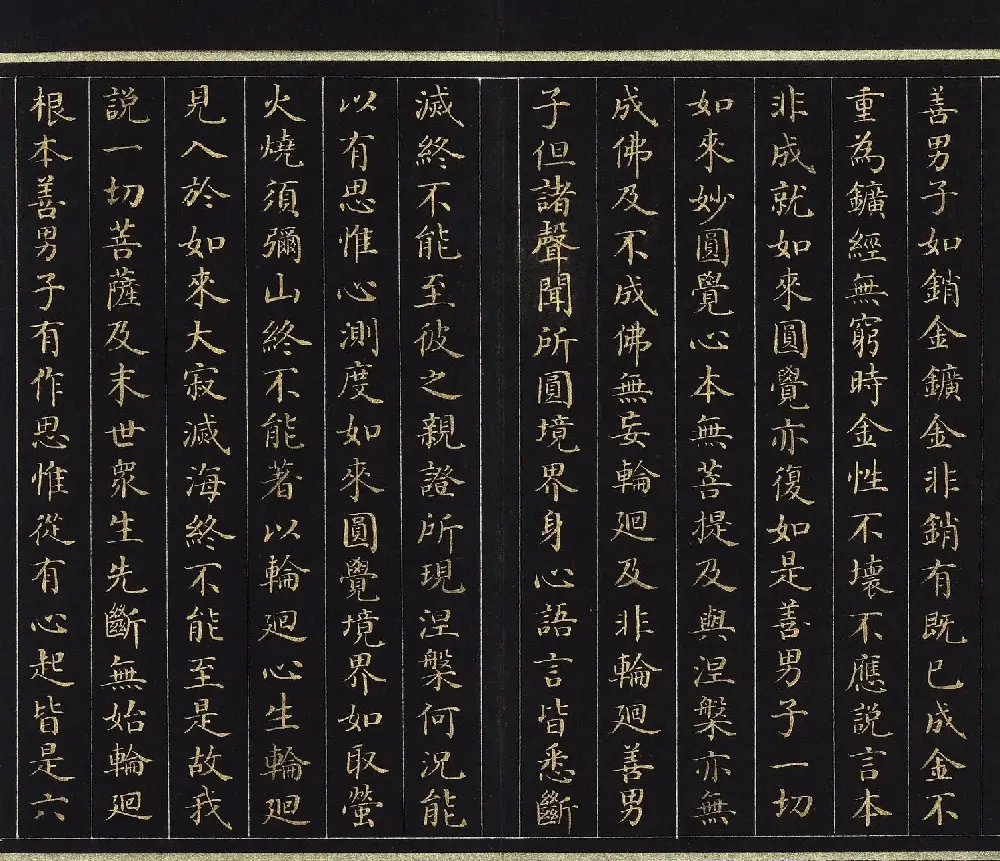 善男子如銷金鑛金非銷有既已成金不
重為鑛經無窮時金性不壞不應説言本
非成就如來圓覺亦復如是善男子一切
如來妙圓覺心本無菩提及與涅槃亦無
成佛及不成佛無妄輪廻及非輪廻善男
子但諸聲聞所圓境界身心語言皆悉斷
滅終不能至彼之親證所現涅槃何況能
以有思惟心測度如來圓覺境界如取螢
火燒須彌山終不能著以輪廻心生輪廻
見入於如來大寂滅海終不能至是故我
説一切菩薩及末世眾生先斷無始輪廻
根本善男子有作思惟從有心起皆是六